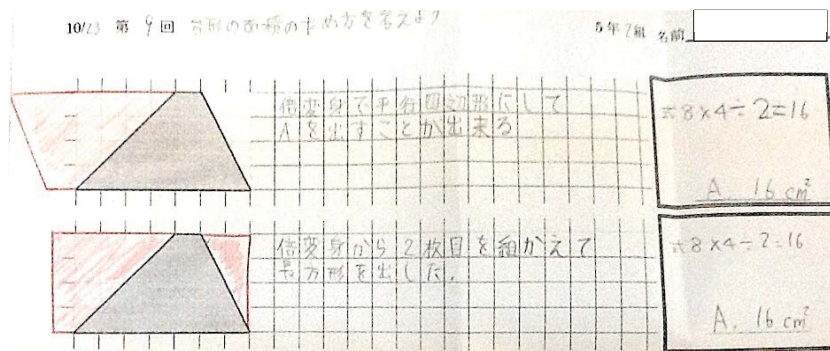 10/23 第9回 台形の面積の求め方を考えよう
5年2組 名前
倍変身で平行四辺形にして
Aを出すことが出来る
式8×4÷2=16
A. 16cm²
倍変身から2枚目を組かえて
長方形を出した.
式8×4÷2=16
A. 16cm²